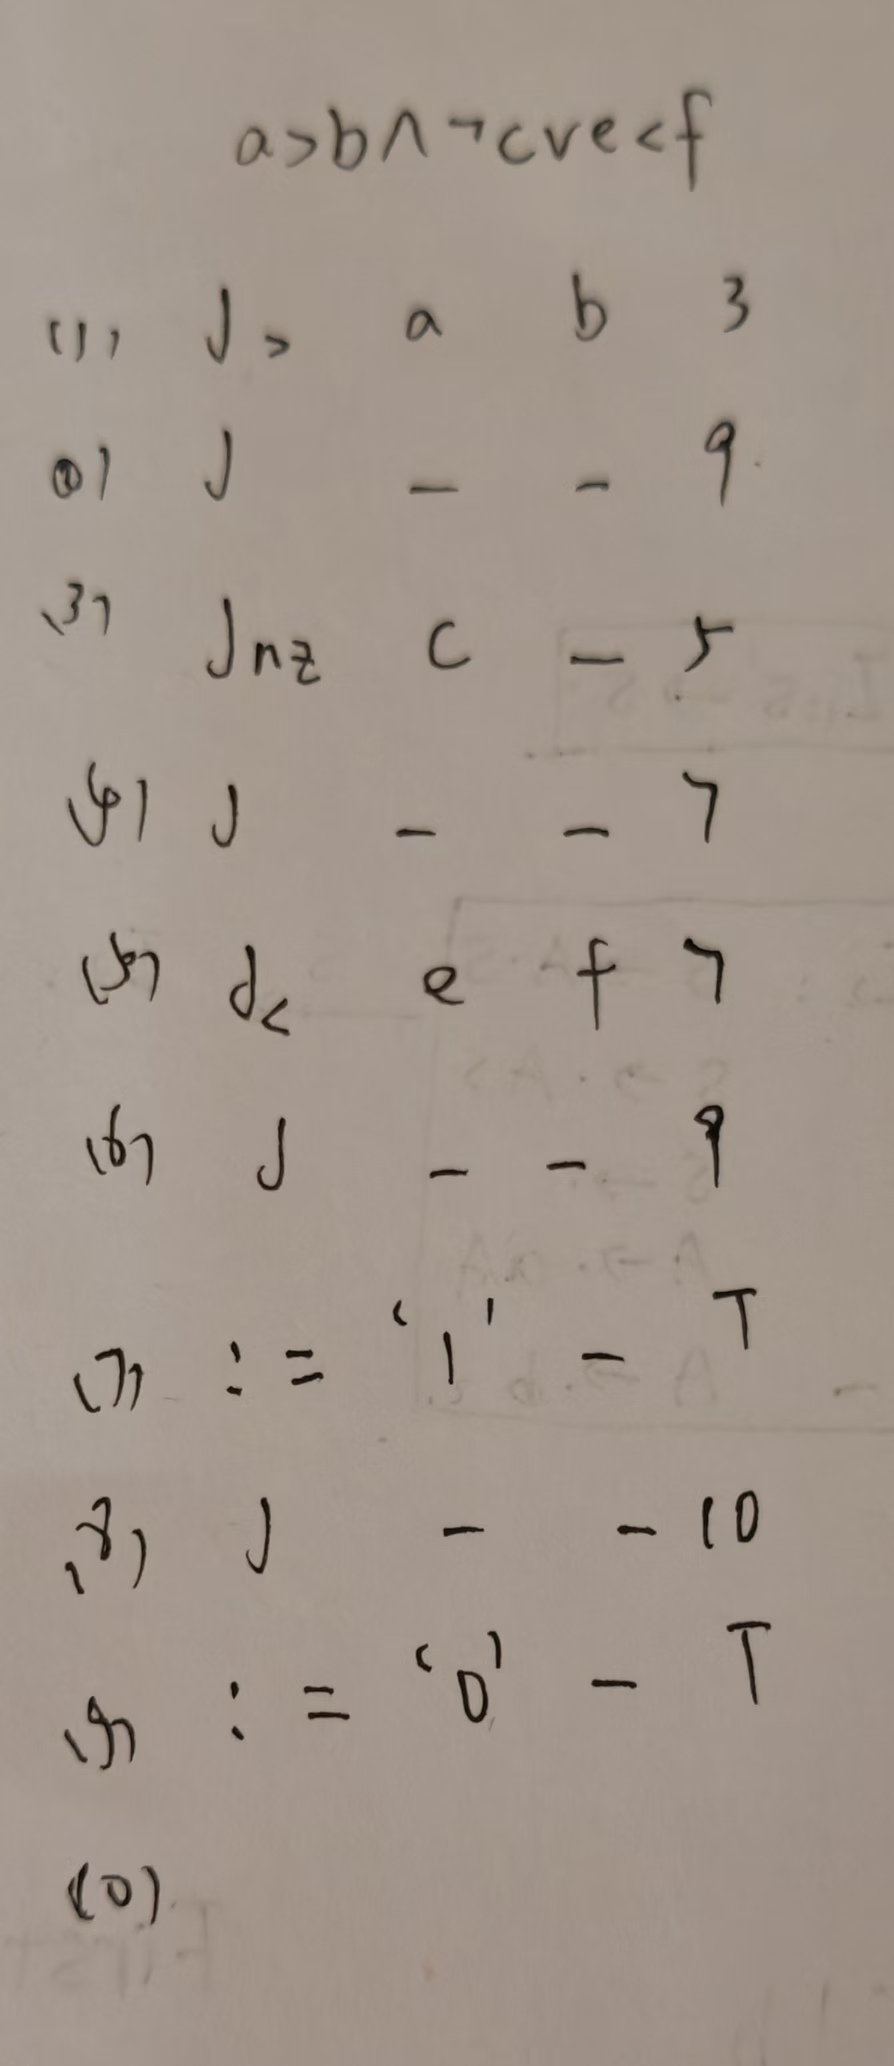 a>b∧¬c∨e<f
(1) J> a b 3
(2) J – – 9
(3) Jnz c – 5
(4) J – – 7
(5) J< e f 7
(6) J – – 9
(7) := '1' – T
(8) J – – 10
(9) := '0' – T
(10)